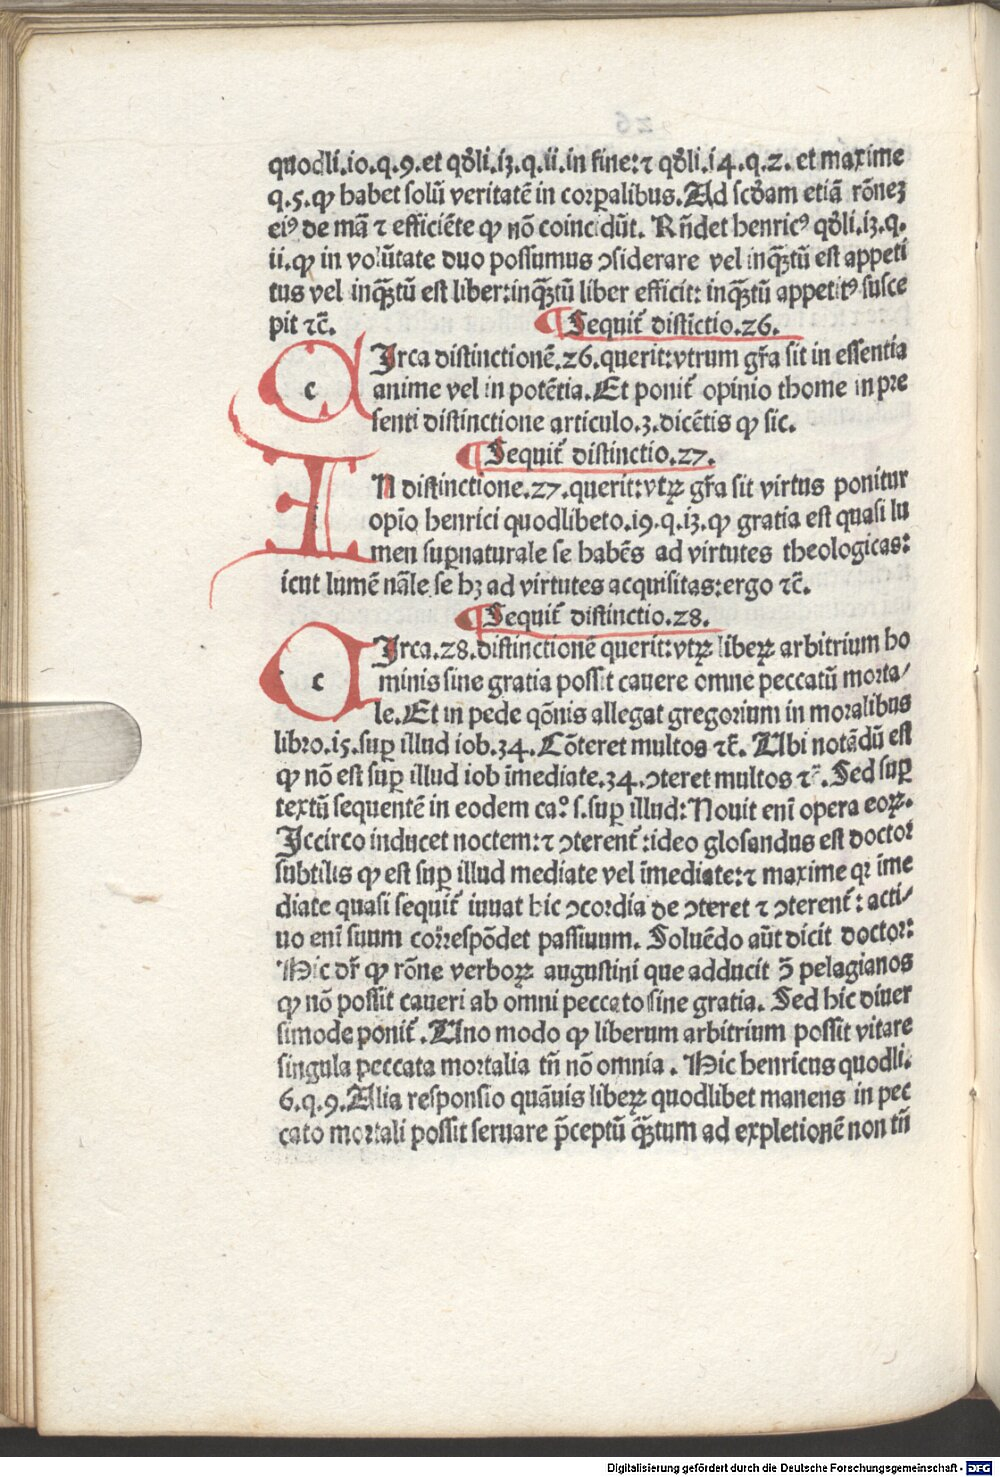 quodli.10.q.9.et qđli.13.q.ii.in fine:⁊ qđli.14.q.2. et maxime
q.5.ꝙ habet solū veritatē in corꝑalibus. Ad scđam etiā rōneꝫ
ei⁹ de mā ⁊ efficiēte ꝙ nō coincidūt. Rn̄det henric⁹ qđli.13.q.
ii.ꝙ in volūtate duo possumus ↄsiderare vel inqȝtū est appeti
tus vel inqȝtū est liber:inqȝtū liber efficit: inqȝtū appetit⁹ susce
pit ⁊c̄.
¶Sequit̄ distictio.26.
cIrca distinctionē.26.querit:vtrum gr̄a sit in essentia
anime vel in potētia.Et ponit̄ opinio thome in pre
senti distinctione articulo.3.dicētis ꝙ sic.
¶Sequit̄ distinctio.27.
IN distinctione.27.querit:vtꝝ gr̄a sit virtus ponitur
opīo henrici quodlibeto.19.q.13.ꝙ gratia est quasi lu
men suꝑnaturale se habēs ad virtutes theologicas:
icut lumē nāle se hȝ ad virtutes acquisitas:ergo ⁊c̄.
¶Sequit̄ distinctio.28.
cIrca.28.distinctionē querit:vtꝝ libeꝝ arbitrium ho
minis sine gratia possit cauere omne peccatū morta/
le.Et in pede qōnis allegat gregorium in moralibus
libro.15.suꝑ illud iob.34. Cōteret multos ⁊c̄. Ubi notādū est
ꝙ nō est suꝑ illud iob īmediate.34.ↄteret multos ⁊c̄. Sed suꝑ
textū sequentē in eodem ca.° s.suꝑ illud: Nouit enī opera eoꝝ.
Iccirco inducet noctem:⁊ ↄterent̄:ideo glosandus est doctor
subtilis ꝙ est suꝑ illud mediate vel īmediate:⁊ maxime qꝛ īme
diate quasi sequit̄ iuuat hic ↄcordia de ↄteret ⁊ ↄterent̄: acti/
uo enī suum correspōdet passiuum. Soluēdo aūt dicit doctor:
Hic dr̄ ꝙ rōne verboꝝ augustini que adducit ↄ̄ pelagianos
ꝙ nō possit caueri ab omni peccato sine gratia. Sed hic diuer
simode ponit̄. Uno modo ꝙ liberum arbitrium possit vitare
singula peccata mortalia tn̄ nō omnia. Hic henricus quodli.
6.q.9.Alia responsio quāuis libeꝝ quodlibet manens in pec
cato mortali possit seruare p̄ceptū qȝtum ad expletionē non tn̄
Digitalisierung gefördert durch die Deutsche Forschungsgemeinschaft - DFG